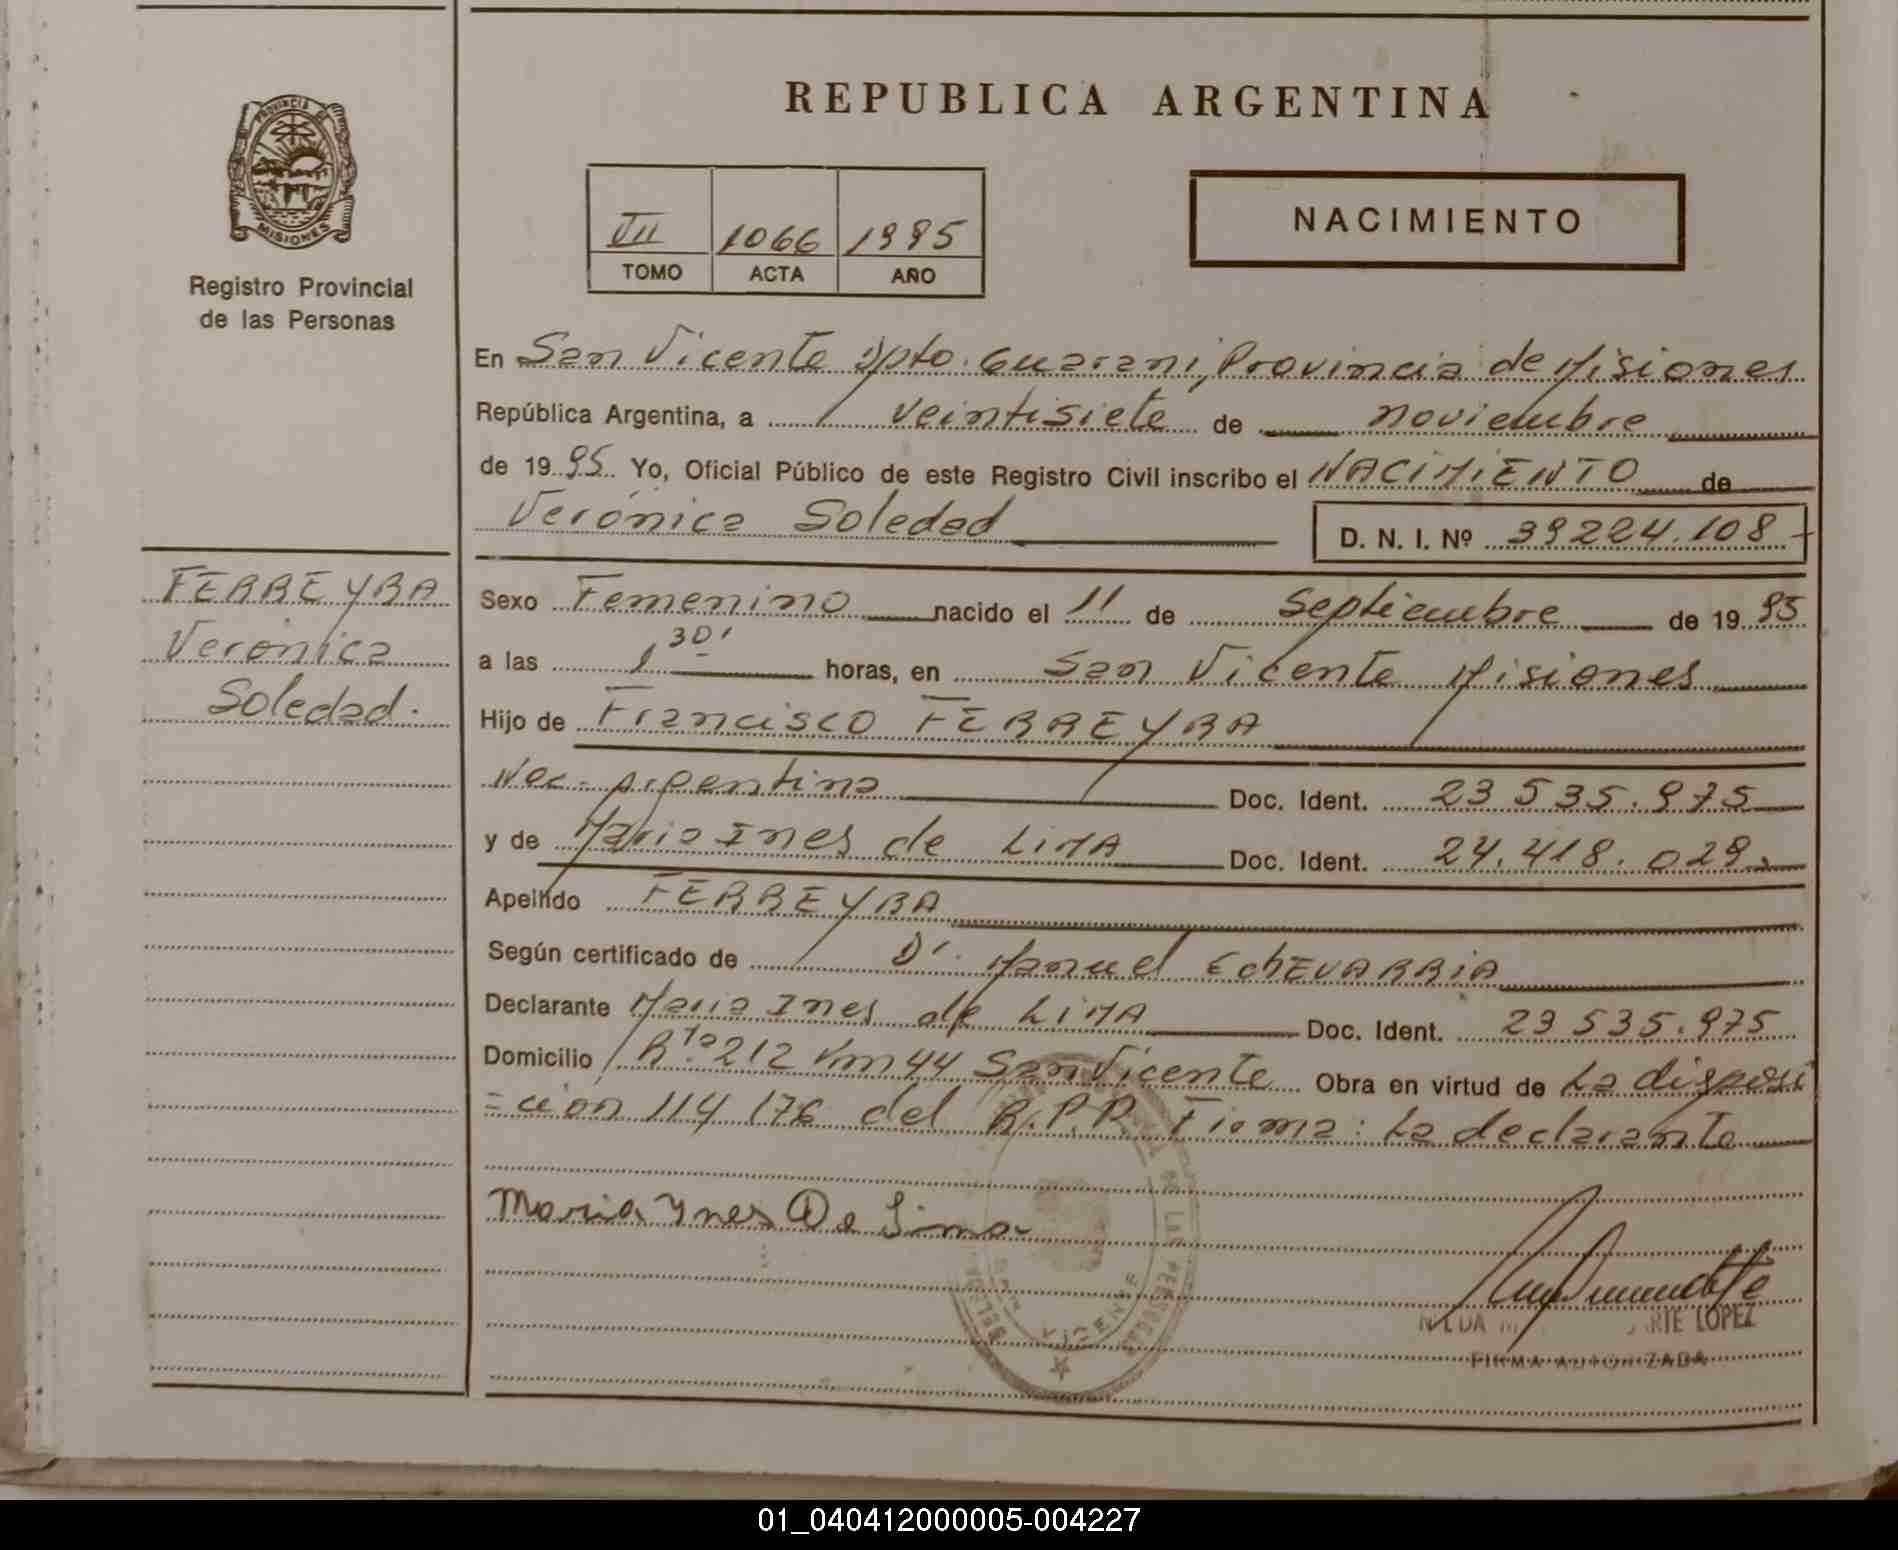 REPUBLICA ARGENTINA
PROVINCIA DE
MISIONES
Registro Provincial
de las Personas
VII 1066 1995
TOMO ACTA AÑO
NACIMIENTO
En San Vicente Dpto. Guarani, Provincia de Misiones
República Argentina, a veintisiete de noviembre
de 1995 Yo, Oficial Público de este Registro Civil inscribo el NACIMIENTO de
Verónica Soledad D. N. I. Nº 39224.108
FERREYRA
Verónica
Soledad.
Sexo Femenino nacido el 11 de Septiembre de 1995
a las 1 30' horas, en San Vicente Misiones
Hijo de Francisco FERREYRA
Nac. Argentina Doc. Ident. 23 535.975
y de Maria Ines de LIMA Doc. Ident. 24.418.029
Apellido FERREYRA
Según certificado de Dr. Manuel EchEVARRIA
Declarante Maria Ines de LIMA Doc. Ident. 23 535.975
Domicilio Rta 212 Km 44 San Vicente Obra en virtud de La disposi
=ción 114/76 del R.P.P. Firma: La declarante
Maria Ynes De Lima
DE LAS PERSONAS
SAN VICENTE
LOPEZ
FIRMA AUTORIZADA
01_040412000005-004227